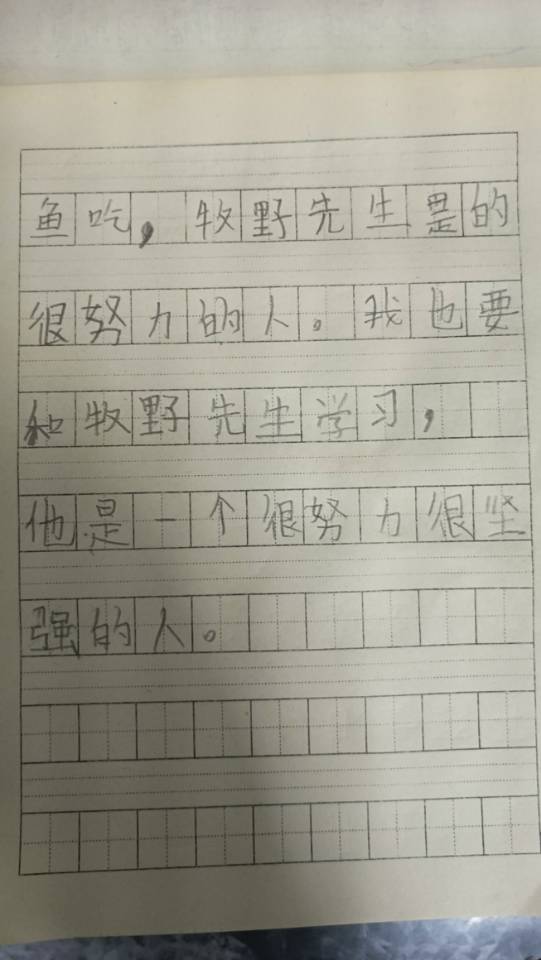 鱼吃，牧野先生是的
很努力的人。我也要
和牧野先生学习，
他是一个很努力很坚
强的人。